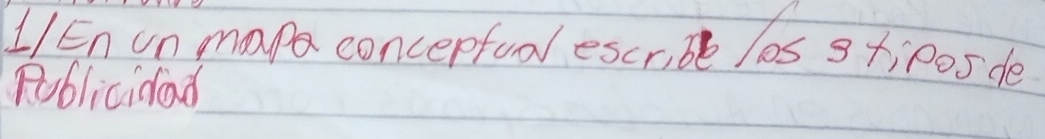 1/ En un mapa conceptual escribe los 3 tipos de
Publicidad